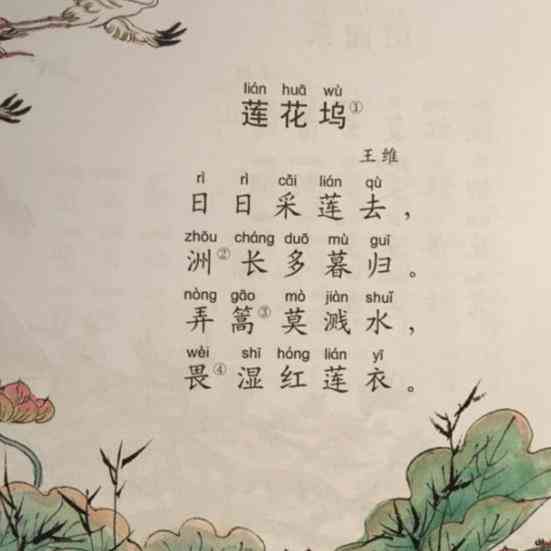 lián huā wù
莲花坞①
王维
rì rì cǎi lián qù
日日采莲去，
zhōu cháng duō mù guī
洲②长多暮归。
nòng gāo mò jiàn shuǐ
弄篙③莫溅水，
wèi shī hóng lián yī
畏④湿红莲衣。